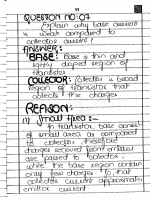 QUESTION NO:07
Explain why base current
is weak compared to
collector current?
ANSWER:
BASE: Base is thin and
lightly doped region of
transistor
COLLECTOR: Collector is broad
region of transistor that
collects the charges
REASON:
(1) Small Area:-
In transistor, base consist
of small area as compared
to collector, therefore
charges received from emitter
are passed to collector,
while the base region contain
only few charges. So, that
collector current approximately
emitter current